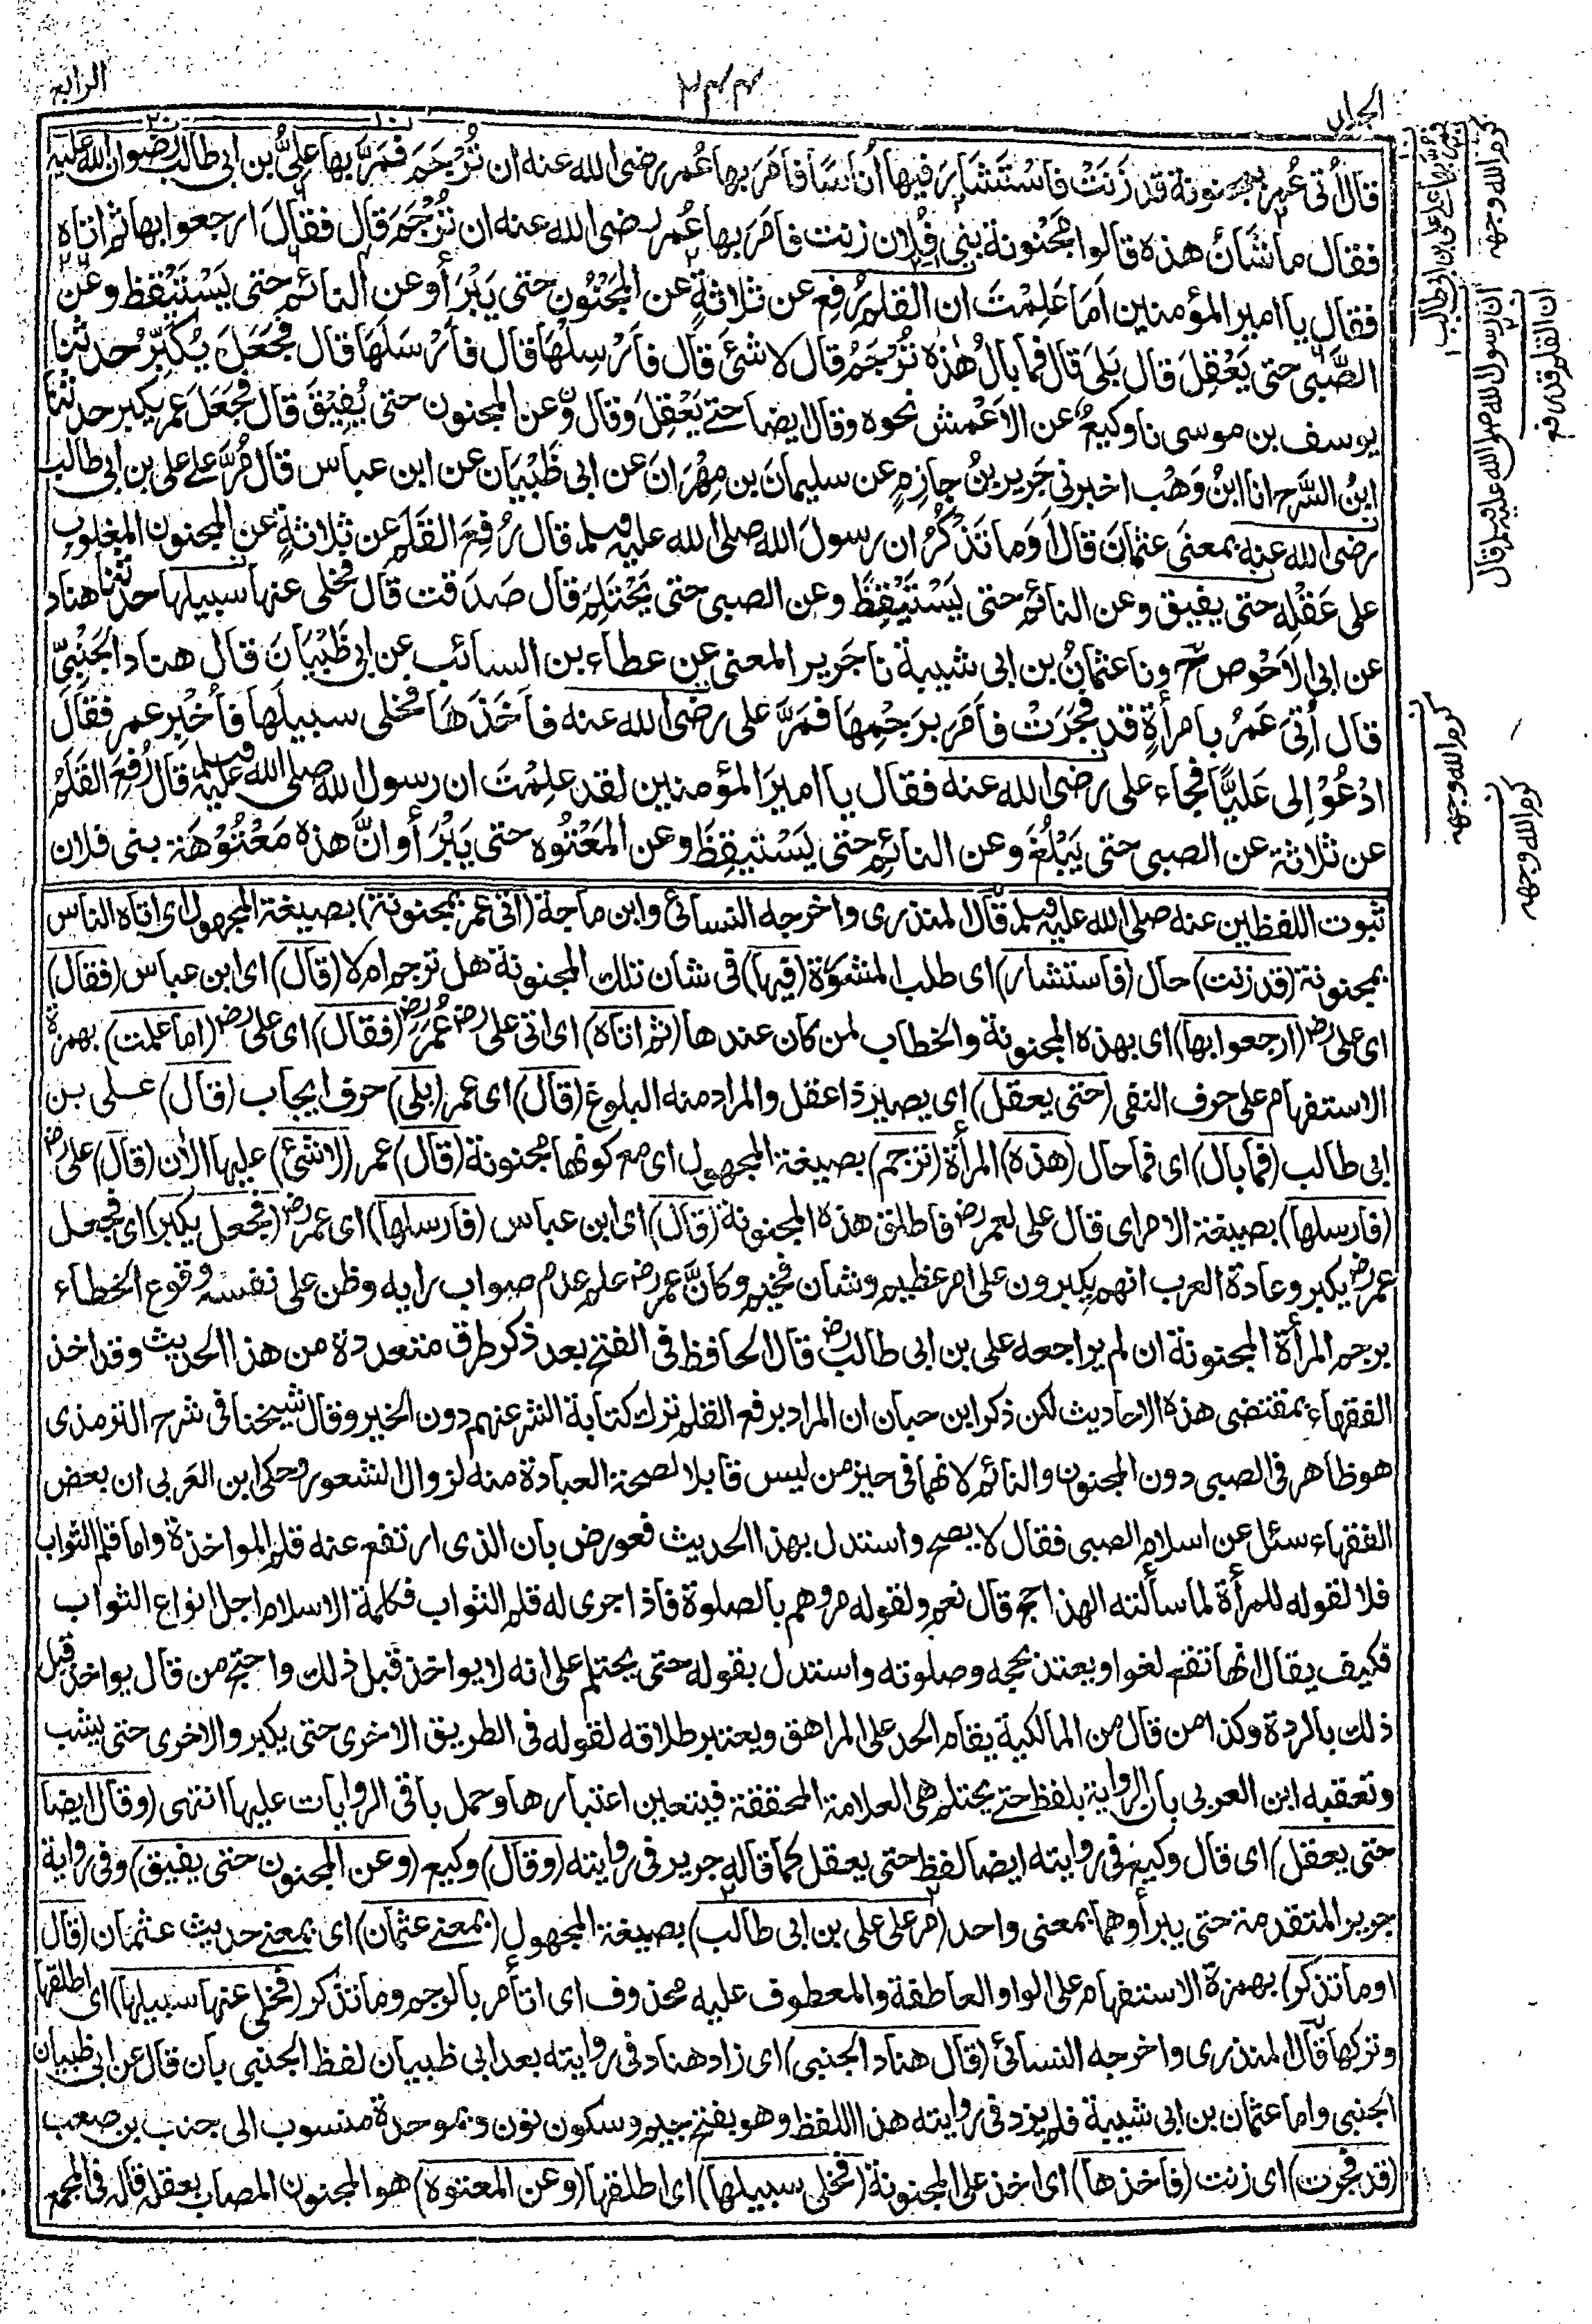 الرابع
٢٤٤
قال أُتى عُمر بمجنونة قد زَنَتْ فاسْتَشَارَ فيها أُنَاسًا فأمَرَ بها عُمر رضى الله عنه ان تُرْجَمَ فَمَرَّ بها عَلِىُّ بن ابى طالب رضوان الله عليه
فقال ما شَأنُ هذه قالوا مَجْنُونة بنى فُلان زنت فأمَرَ بها عُمر رضى الله عنه ان تُرْجَمَ قال فقَالَ ارجعوا بها ثم اتاه
فقال يا امير المؤمنين اَمَا عَلِمْتَ ان القلم رُفِع عن ثلاثةٍ عن المجْنُون حتى يَبْرَأ وعن النائم حتى يَسْتَيْقِظ وعن
الصَّبِى حتى يَعْقِلَ قال بَلى قال فما بالُ هٰذه تُرْجَمُ قال لا شئَ قال فأرْسِلْهَا قال فأرْسَلَهَا قال فجَعَلَ يُكَبِّرُ حدثنا
يوسف بن موسى نا وكيعٌ عن الاَعْمش نحوه وقال ايضا حتے يَعْقِلَ وقال وعن المجنون حتى يُفِيْقَ قال فجَعَلَ عمر يكبر حدثنا
ابنُ السَّرح انا ابنُ وَهْب اخبرنى جَرير بنُ حازمٍ عن سليمانَ بن مِهْرَانَ عن ابى ظَبْيَان عن ابن عباس قال مُرَّ علے على بن ابى طالب
رضى الله عنه بمعنى عثمانَ قال أَوَما تَذْكُرُ ان رسولَ الله صلى الله عليه وسلم قال رُفِعَ القَلَم عن ثلاثةٍ عن المجنون المغلوب
على عَقْلِه حتى يفيق وعن النائم حتى يَسْتَيْقِظَ وعن الصبى حتى يَحْتَلِمَ قال صَدقت قال فخلى عنها سبيلها حدثنا هناد
عن ابى الاَحْوص ح ونا عثمانُ بن ابى شيبة نا جَرير المعنى عن عطاء بن السائب عن ابى ظَبْيَانَ قال هناد الجَنْبِىّ
قال أُتِىَ عُمَرُ بامرأةٍ قد فجَرَتْ فأمَر برَجْمِهَا فمَرَّ على رضى الله عنه فأخَذَهَا فخلى سبيلَها فأُخْبِرَ عمر فقال
ادْعُوْا لى عَليًّا فجاء على رضى الله عنه فقال يا اميرَ المؤمنين لقد علِمْتَ ان رسول الله صلى الله عليه وسلم قال رُفِعَ القَلَمُ
عن ثلاثة عن الصبى حتى يَبْلُغَ وعن النائِم حتى يَسْتَيقِظَ وعن المَعْتُوه حتى يَبْرَأ وانَّ هذه مَعْتُوْهَة بنى فلان
ثبوت اللفظين عنه صلى الله عليه وسلم قال المنذرى واخرجه النسائى وابن ماجة (اتى عمر بمجنونة) بصيغة المجهول اى اتاه الناس
بمجنونة (قد زنت) حال (فاستشار) اى طلب المشورة (فيها) فى شان تلك المجنونة هل ترجم ام لا (قال) اى ابن عباس (فقال)
اى على رض (ارجعوا بها) اى بهذه المجنونة والخطاب لمن كان عندها (ثم اتاه) اى اتى على رض عُمَرَ رض (فقال) اى على رض (اما علمت) بهمزة
الاستفهام على حرف النفى (حتى يعقل) اى يصير ذا عقل والمراد منه البلوغ (قال) اى عمر (بلى) حرف ايجاب (قال) على بن
ابى طالب (فما بال) اى فما حال (هذه) المرأة (ترجم) بصيغة المجهول اى مع كونها مجنونة (قال) عمر (لا شئ) عليها الآن (قال) على رض
(فارسلها) بصيغة الامر اى قال على لعمر رض فاطلق هذه المجنونة (قال) اى ابن عباس (فارسلها) اى عمر رض (فجعل يكبر) اى فجعل
عمر رض يكبر وعادة العرب انهم يكبرون على امر عظيم وشان فخيم وكانَّ عمر رض علم عدم صواب رايه وظن على نفسه وقوع الخطاء
برجم المرأة المجنونة ان لم يراجعه على بن ابى طالب رض قال الحافظ فى الفتح بعد ذكر طرق متعددة من هذا الحديث وقد اخذ
الفقهاء بمقتضى هذه الاحاديث لكن ذكر ابن حبان ان المراد برفع القلم ترك كتابة الشر عنهم دون الخير وقال شيخنا فى شرح الترمذى
هو ظاهر فى الصبى دون المجنون والنائم لانهما فى حيز من ليس قابلا لصحة العبادة منه لزوال الشعور وحكى ابن العربى ان بعض
الفقهاء سئل عن اسلام الصبى فقال لا يصح واستدل بهذا الحديث فعورض بان الذى ارتفع عنه قلم المواخذة واما قلم الثواب
فلا لقوله للمرأة لما سألته الهذا حج قال نعم ولقوله مروهم بالصلوة فاذا جرى له قلم الثواب فكلمة الاسلام اجل انواع الثواب
فكيف يقال انها تقع لغوا ويعتد بحجه وصلوته واستدل بقوله حتى يحتلم على انه لا يواخذ قبل ذلك واحتج من قال يواخذ قبل
ذلك بالردة وكذا من قال من المالكية يقام الحد على المراهق ويعتبر طلاقه لقوله فى الطريق الاخرى حتى يكبر والاخرى حتى يشب
وتعقبه ابن العربى بان الرواية بلفظ حتے يحتلم هى العلامة المحققة فيتعين اعتبارها وحمل باقى الروايات عليها انتهى (وقال ايضا
حتى يعقل) اى قال وكيع فى روايته ايضا لفظ حتى يعقل كما قاله جرير فى روايته (وقال) وكيع (وعن المجنون حتى يفيق) وفى رواية
جرير المتقدمة حتى يبرأ وهما بمعنى واحد (مر على على بن ابى طالب) بصيغة المجهول (بمعنے عثمان) اى بمعنے حديث عثمان (قال
او ما تذكر) بهمزة الاستفهام على الواو العاطفة والمعطوف عليه محذوف اى اتأمر بالرجم وما تذكر (فخلى عنها سبيلها) اى اطلقها
وتركها قال المنذرى واخرجه النسائى (قال هناد الجنبى) اى زاد هناد فى روايته بعد ابى ظبيان لفظ الجنبى بان قال عن ابى ظبيان
الجنبى واما عثمان بن ابى شيبة فلم يزد فى روايته هذا اللفظ وهو بفتح جيم وسكون نون وبموحدة منسوب الى جنب بن صعب
(قد فجرت) اى زنت (فاخذها) اى اخذ على المجنونة (فخلى سبيلها) اى اطلقها (وعن المعتوه) هو المجنون المصاب بعقله قاله فى المجمع
كرم الله وجهه
ان رسول الله صلى الله عليه وسلم قال
ان القلم قد رفع
كرم الله وجهه
كرم الله وجهه